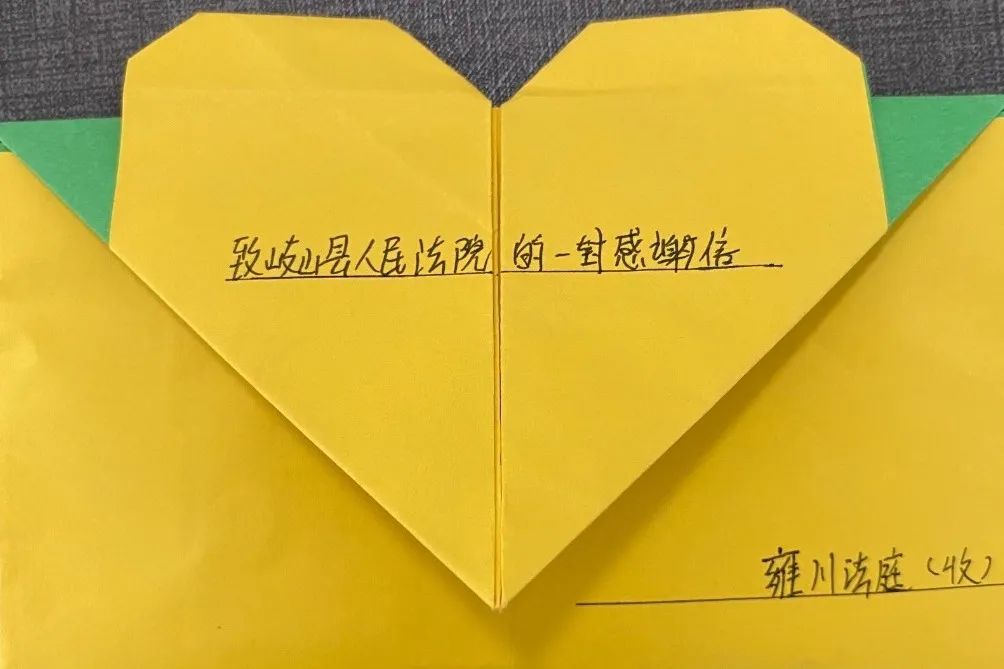 致岐山县人民法院的一封感谢信
雍川法庭（收）